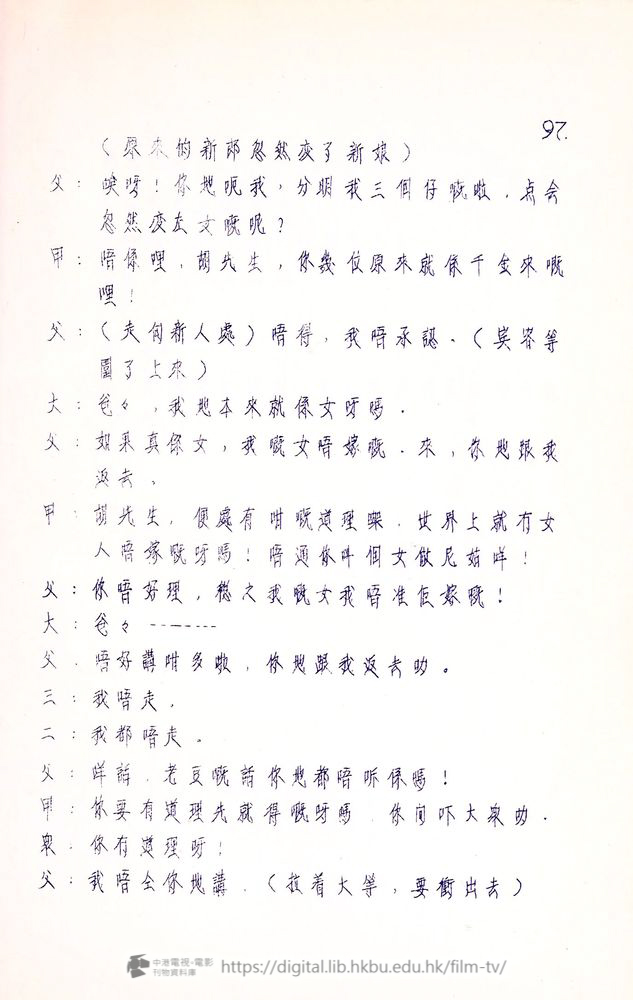 97.
（原來的新郎忽然变了新娘）
父：唉呀！你哋呃我，分明我三個仔嘅啦．点会
忽然变左女嘅呢？
甲：唔係哩，胡先生，你幾位原來就係千金來嘅
嘿！
父：（走向新人處）唔得，我唔承認．（宾客等
圍了上來）
大：爸々，我哋本來就係女呀嗎．
父：如果真係女，我嘅女唔嫁嘅．來，你哋跟我
返去。
甲：胡先生，便處有咁嘅道理㗎．世界上就冇女
人唔嫁嘅呀嗎！唔通你叫個女做尼姑咩！
父：你唔好理，總之我嘅女我唔准佢嫁嘅！
大：爸々-------
父．唔好講咁多啦，你哋跟我返去叻。
三：我唔走．
二：我都唔走。
父：咩話．老豆嘅話你哋都唔听係嗎！
甲：你要有道理先就得嘅呀嗎．你问吓大衆叻．
衆：你有道理呀！
父：我唔仝你哋講．（拉着大等，要衝出去）
中港電視・電影
刊物資料庫
https://digital.lib.hkbu.edu.hk/film-tv/